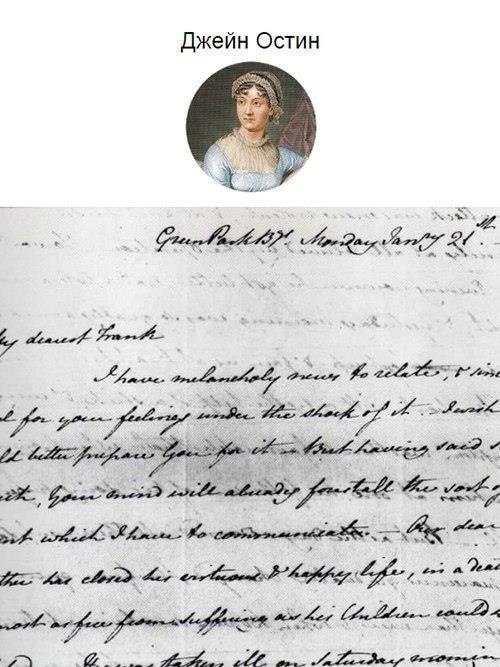 Джейн Остин
Green Park Bgs. Monday Janry 21st.
My dearest Frank
I have melancholy news to relate, & sin
l for your feelings under the shock of it. I wish
ld better prepare You for it. But having said s
Your mind will already forestall the sort o
nt which I have to communicate. Our dear
ther has closed his virtuous & happy life, in a deat
most as free from suffering as his Children could
It was taken ill on Saturday mornin